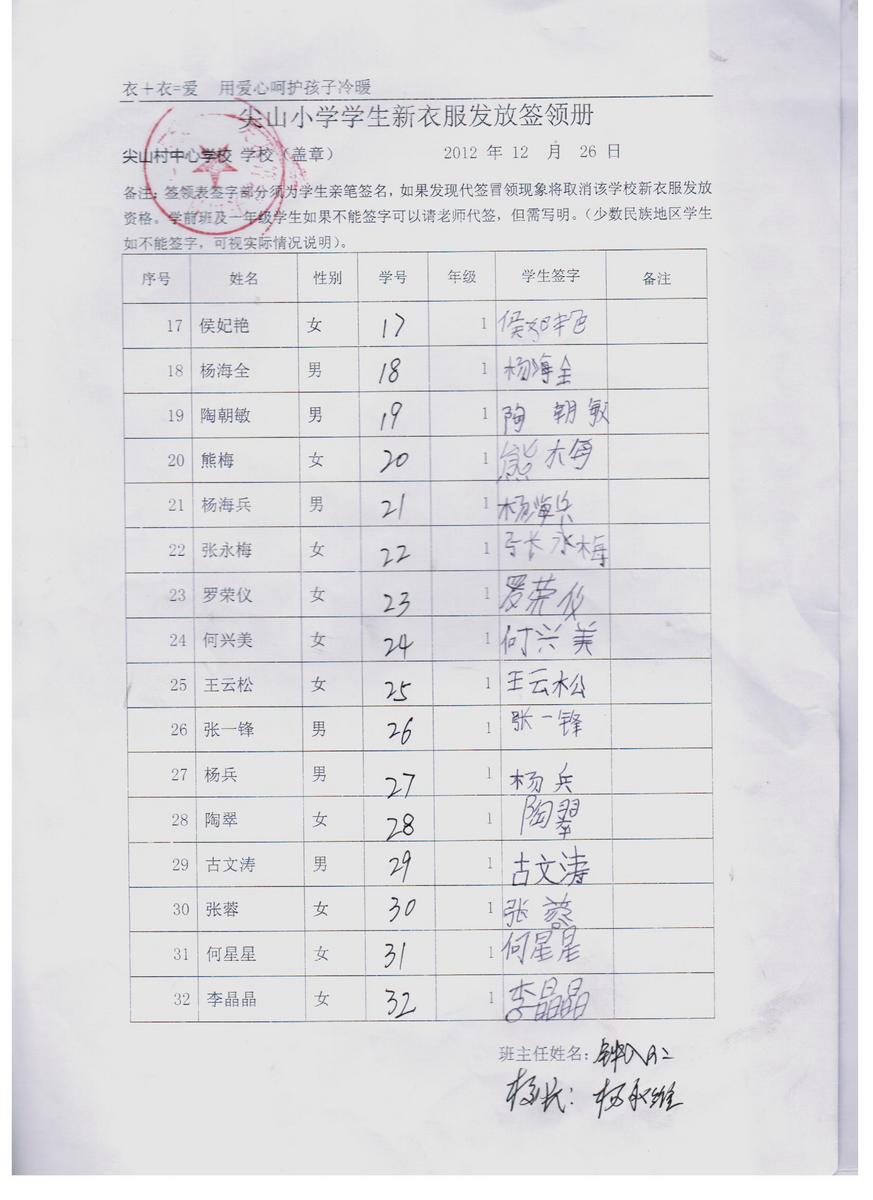 衣+衣=爱 用爱心呵护孩子冷暖
尖山小学学生新衣服发放签领册
尖山村中心学校 学校(盖章) 2012 年 12 月 26 日
备注:签领表签字部分须为学生亲笔签名,如果发现代签冒领现象将取消该学校新衣服发放
资格。学前班及一年级学生如果不能签字可以请老师代签,但需写明。(少数民族地区学生
如不能签字,可视实际情况说明)。
序号 姓名 性别 学号 年级 学生签字 备注
17 侯妃艳 女 17 1 侯妃艳
18 杨海全 男 18 1 杨海全
19 陶朝敏 男 19 1 陶 朝敏
20 熊梅 女 20 1 熊梅
21 杨海兵 男 21 1 杨海兵
22 张永梅 女 22 1 张永梅
23 罗荣仪 女 23 1 罗荣仪
24 何兴美 女 24 1 何兴美
25 王云松 女 25 1 王云松
26 张一锋 男 26 1 张一锋
27 杨兵 男 27 1 杨兵
28 陶翠 女 28 1 陶翠
29 古文涛 男 29 1 古文涛
30 张蓉 女 30 1 张蓉
31 何星星 女 31 1 何星星
32 李晶晶 女 32 1 李晶晶
班主任姓名:
校长:杨永维